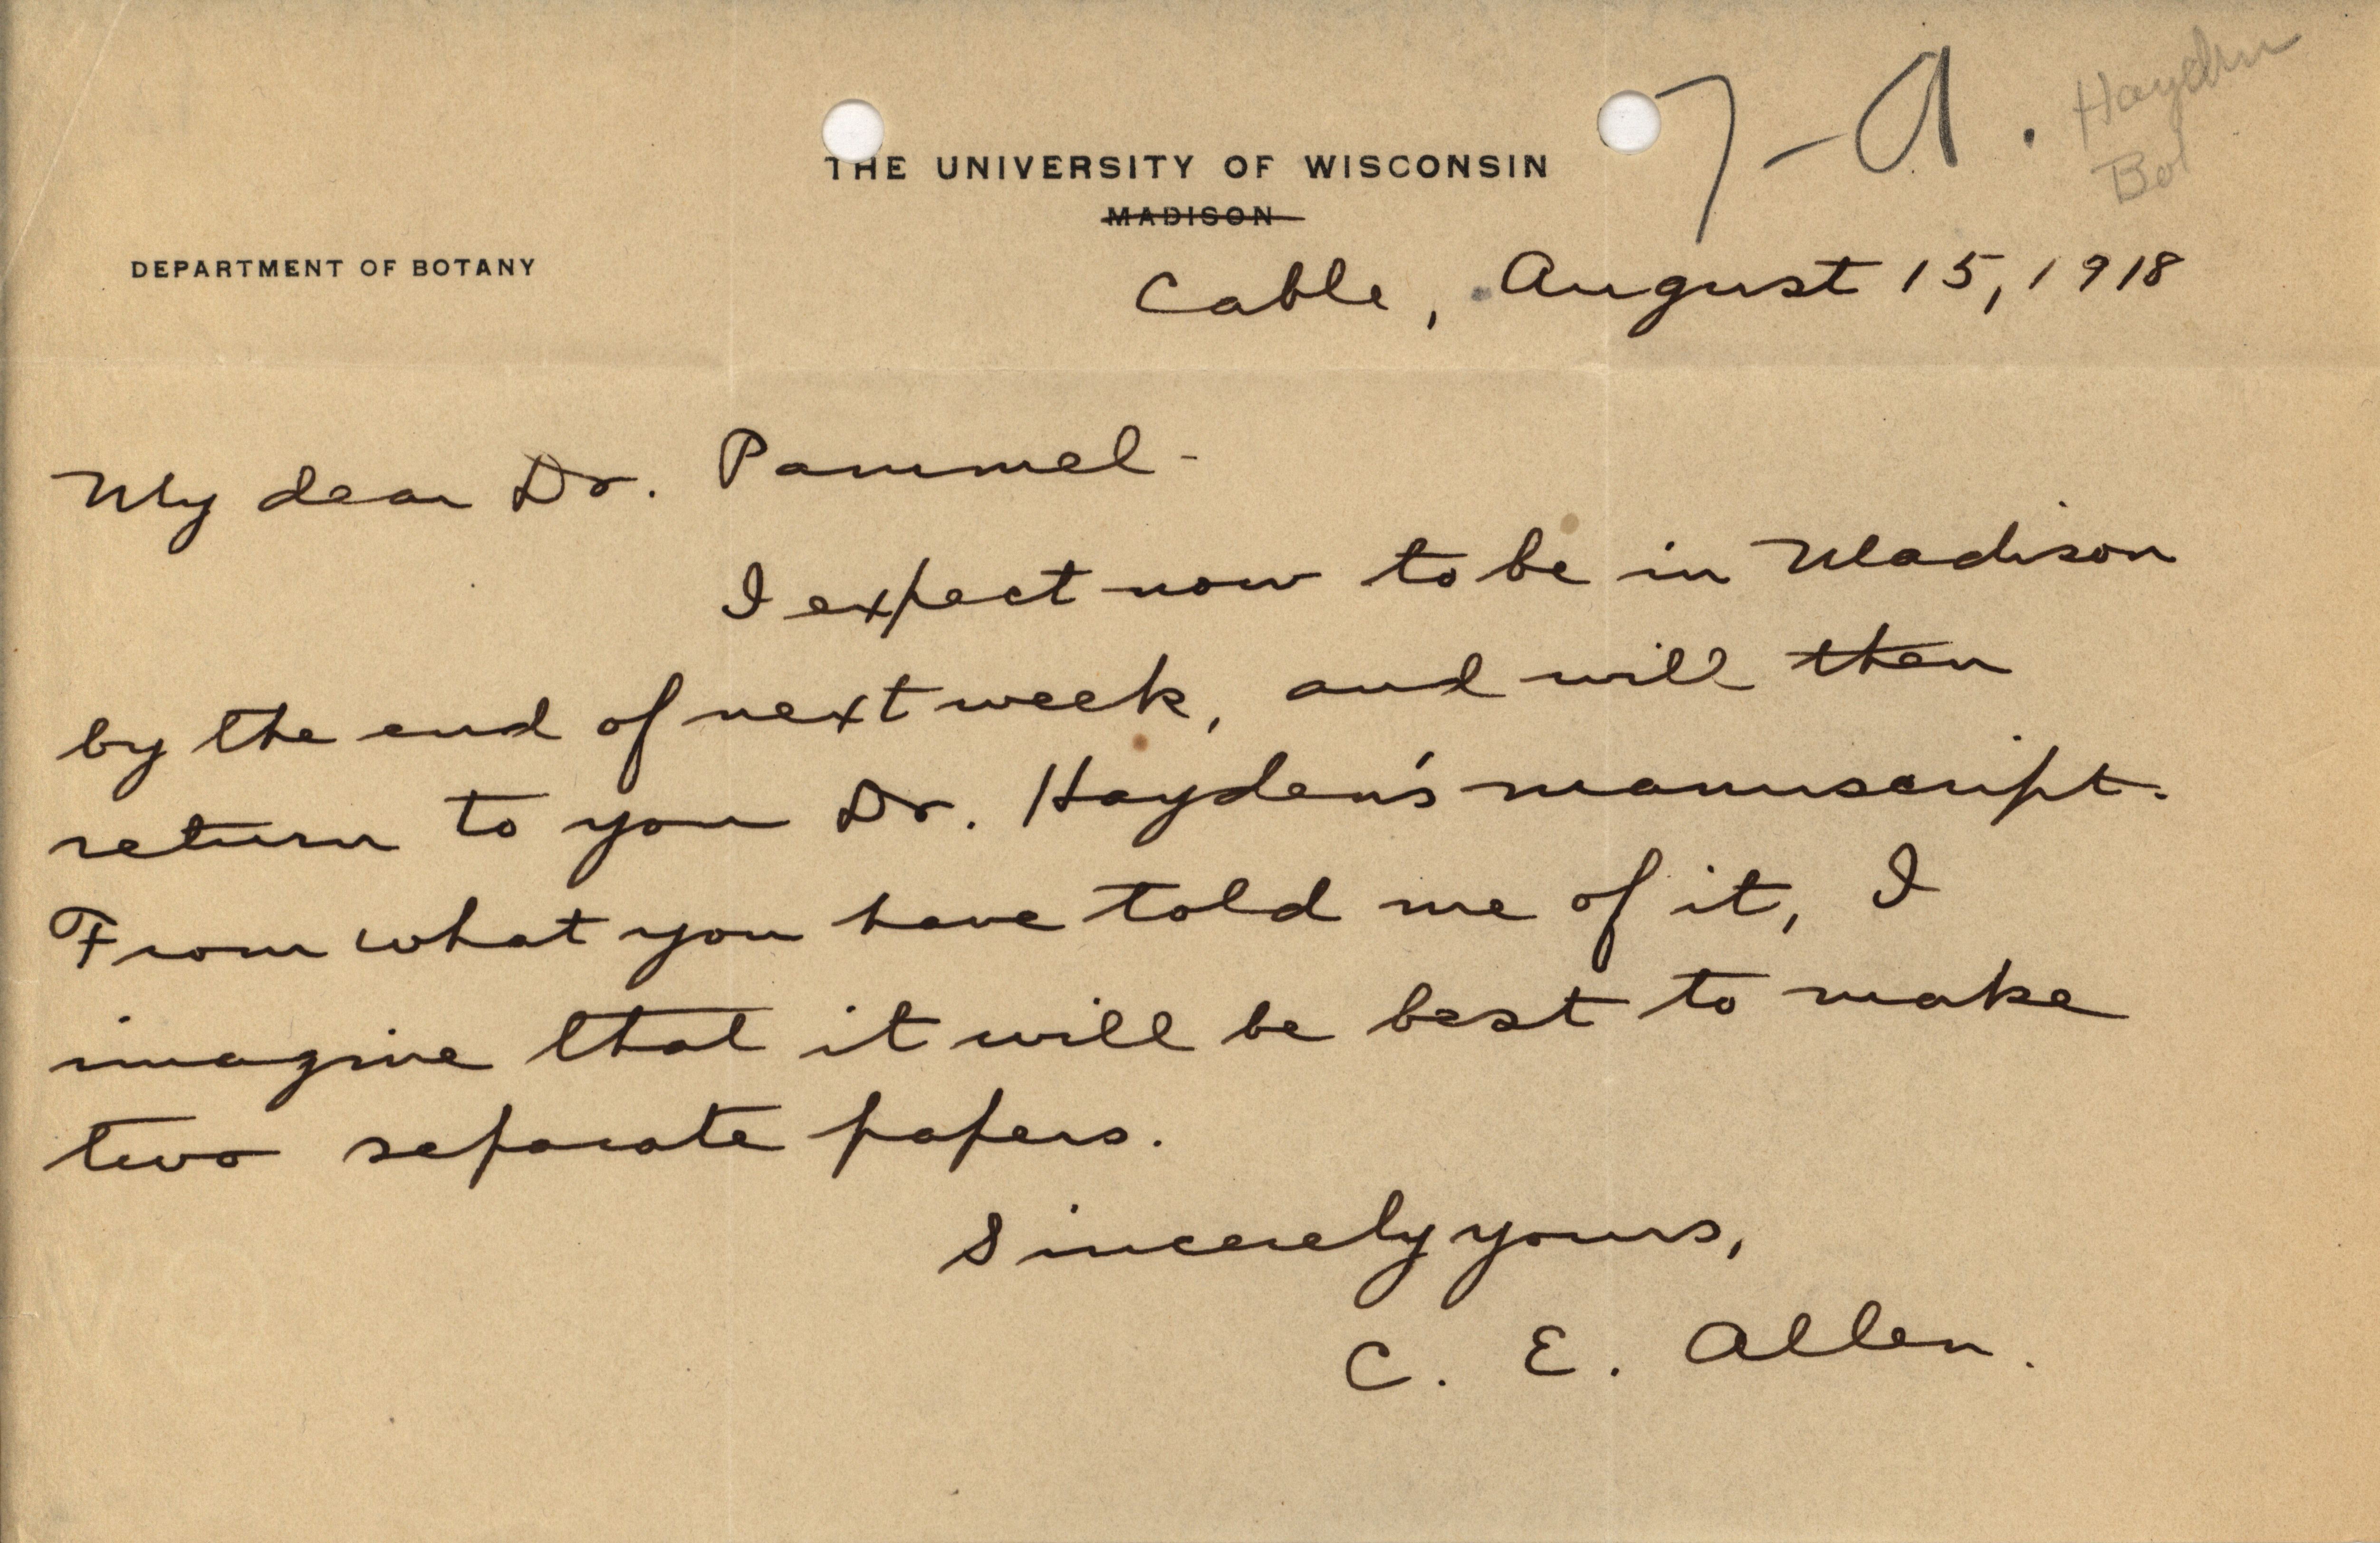 7-A.
Hayden
Bot
THE UNIVERSITY OF WISCONSIN
MADISON
DEPARTMENT OF BOTANY
Cable, August 15, 1918
My dear Dr. Pammel-
I expect now to be in Madison
by the end of next week, and will then
return to you Dr. Hayden's manuscript.
From what you have told me of it, I
imagine that it will be best to make
two separate papers.
Sincerely yours,
C. E. Allen.